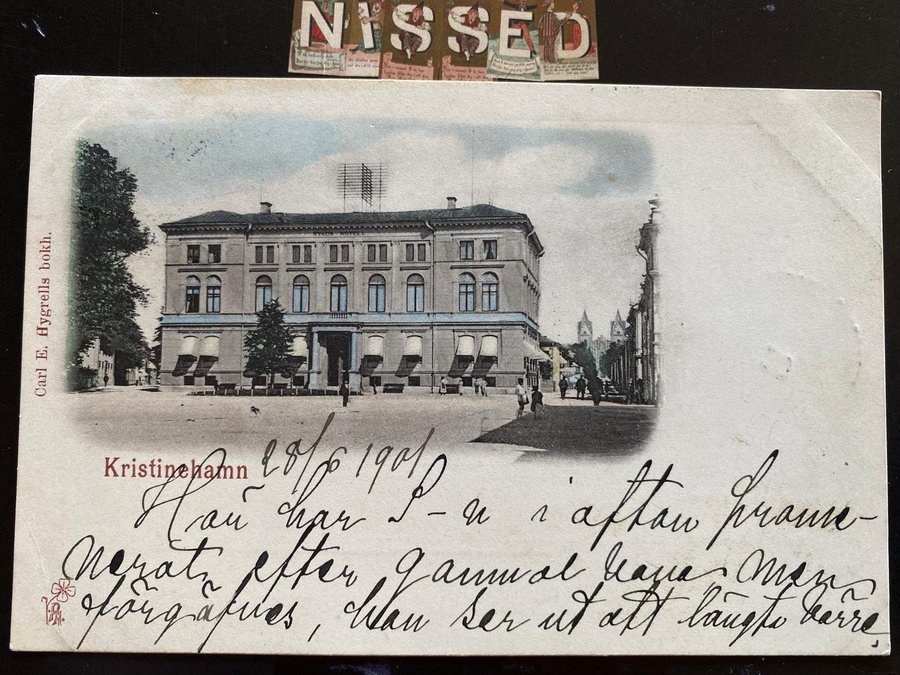 NISSED
Carl E. Hygrells bokh.
Kristinehamn 28/6 1901
har S-n i afton prome-
nerat, efter gammal vana men
förgäfves, han ser ut att längta